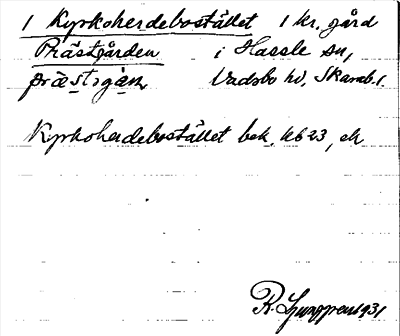 1 Kyrkoherdebostället 1 kr. gård
Prästgården i Hassle sn,
præstsgán Vadsbo hd, Skarab.l.
Kyrkoherdebostället bek. kb 23, ek
R. Ljunggren 1931